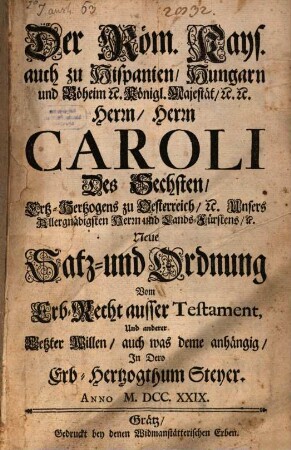 Der Röm. Kays.
auch zu Hispanien/ Hungarn
und Böheim ꝛc. Königl. Majestät/ ꝛc. ꝛc.
Herrn/ Herrn
CAROLI
Des Sechsten/
Ertz-Hertzogens zu Oesterreich/ ꝛc. Unsers
Allergnädigsten Herrn und Lands-Fürstens/ ꝛc.
Neue
Satz- und Ordnung
Vom
Erb-Recht ausser Testament,
Und anderer
Letzter Willen/ auch was deme anhängig/
In Dero
Erb-Hertzogthum Steyer.
ANNO M. DCC. XXIX.
Grätz/
Gedruckt bey denen Widmanstätterischen Erben.